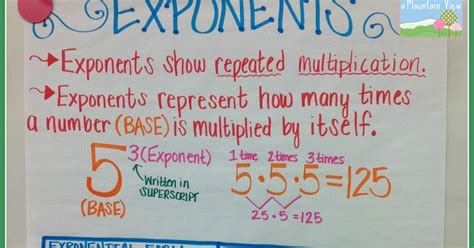 EXPONENTS
a Mountain View
→Exponents show repeated multiplication.
→Exponents represent how many times
a number (BASE) is multiplied by itself.
5 3 (Exponent)
Written in
SUPERSCRIPT
(BASE)
1 time 2 times 3 times
5·5·5=125
25·5=125